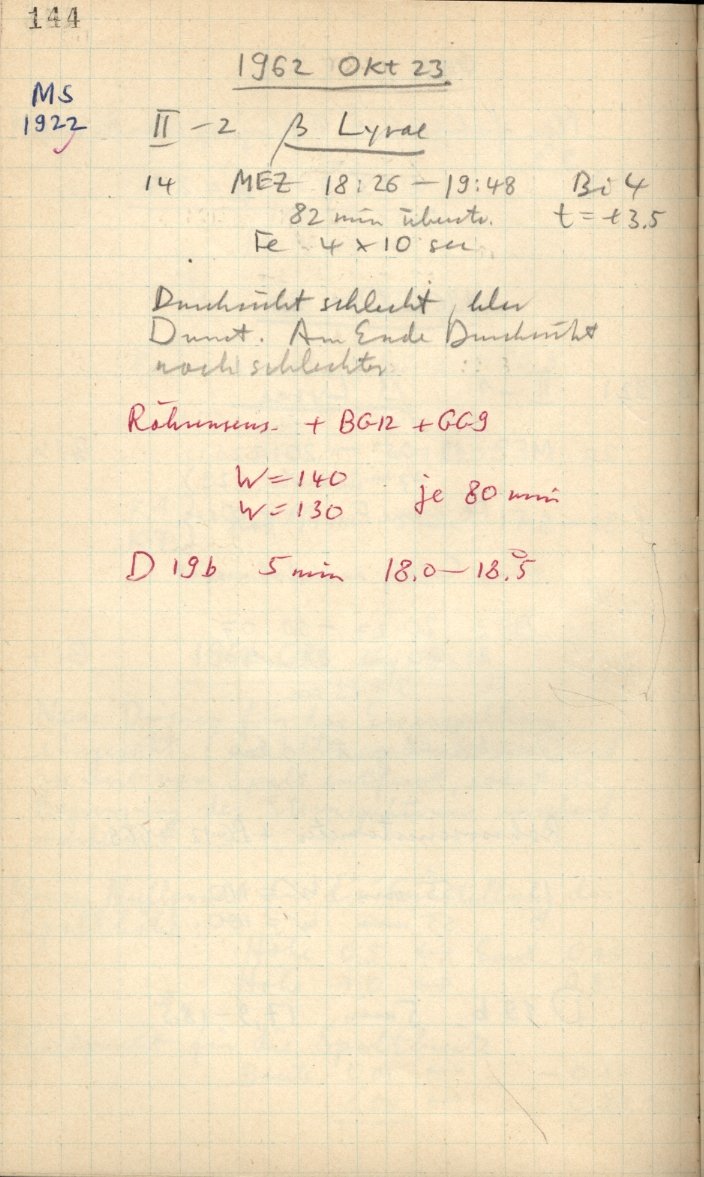 144
1962 Okt 23
MS
1922
II - 2 β Lyrae
14 MEZ 18:26 – 19:48 Bi 4
82 min übestr. t = +3.5
Fe 4 x 10 sec
Durchsicht schlecht,
Dunst. Am Ende Durchsicht
noch schlechter
Röhrensens. + BG12 + GG9
W = 140
W = 130 je 80 min
D 19b 5 min 18.0 – 18.5